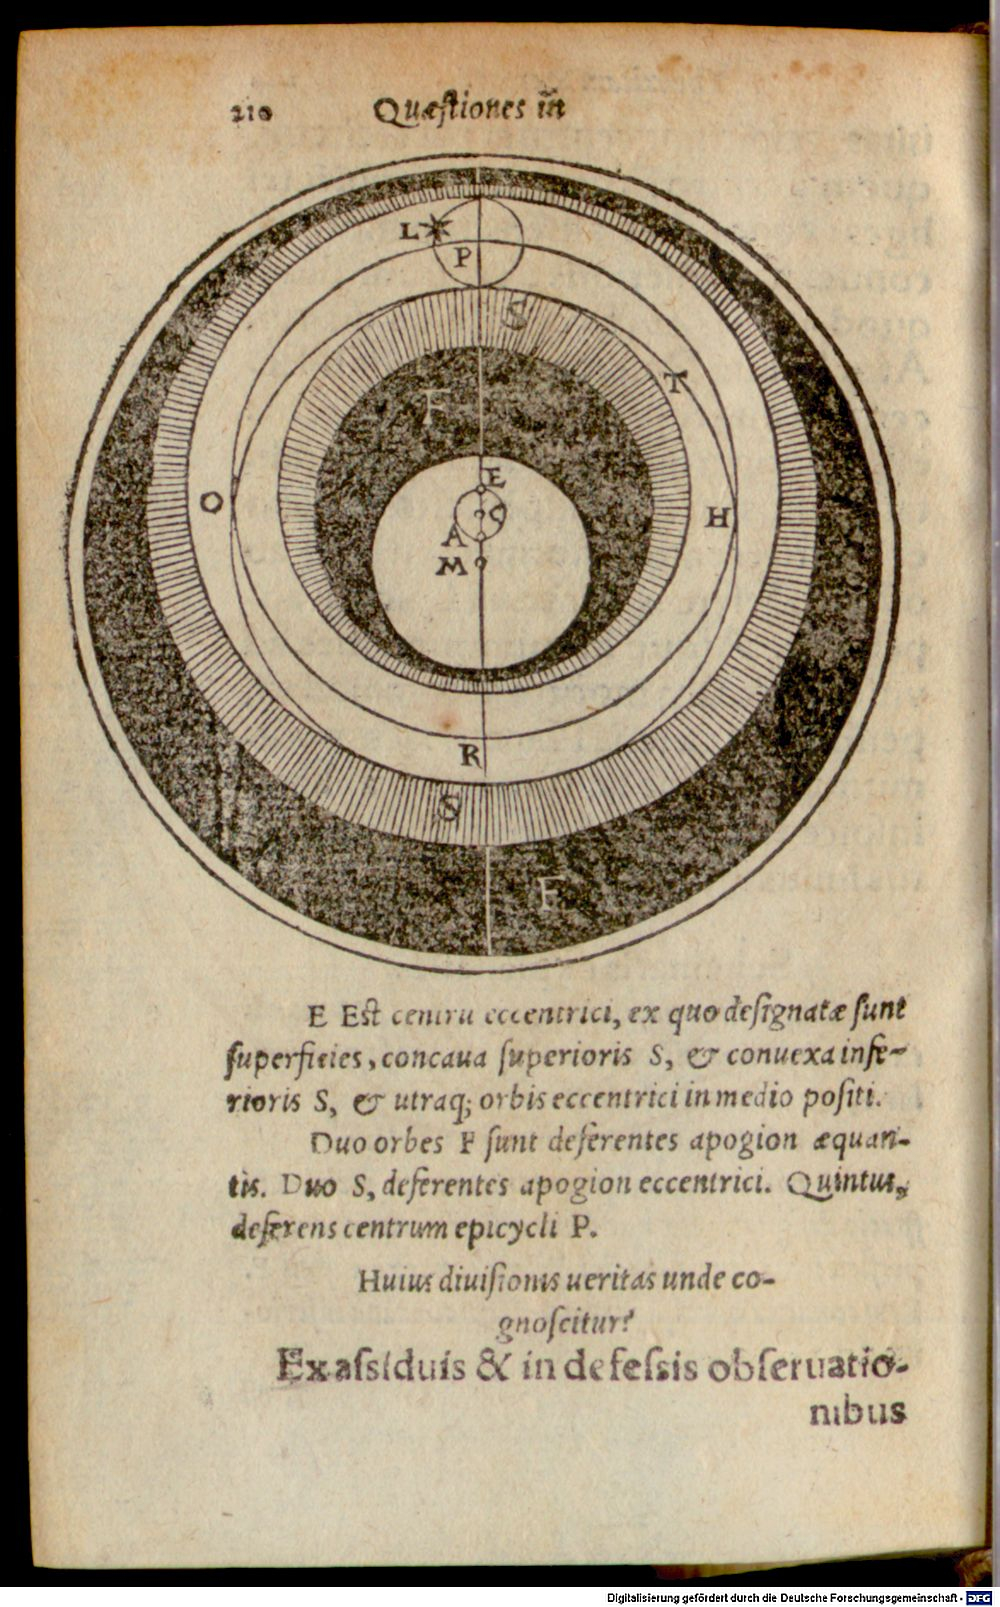 210 Quæſtiones in
L
P
S
T
F
O
E
C
H
A
M
R
S
F
E Eſt centrū eccentrici, ex quo deſignatæ ſunt
ſuperficies, concaua ſuperioris S, & conuexa infe-
rioris S, & utraq; orbis eccentrici in medio poſiti.
Duo orbes F ſunt deferentes apogion æquan-
tis. Duo S, deferentes apogion eccentrici. Quintus,
deferens centrum epicycli P.
Huius diuiſionis ueritas unde co-
gnoſcitur?
Ex aſsiduis & in defeſsis obſeruatio-
nibus
Digitalisierung gefördert durch die Deutsche Forschungsgemeinschaft - DFG